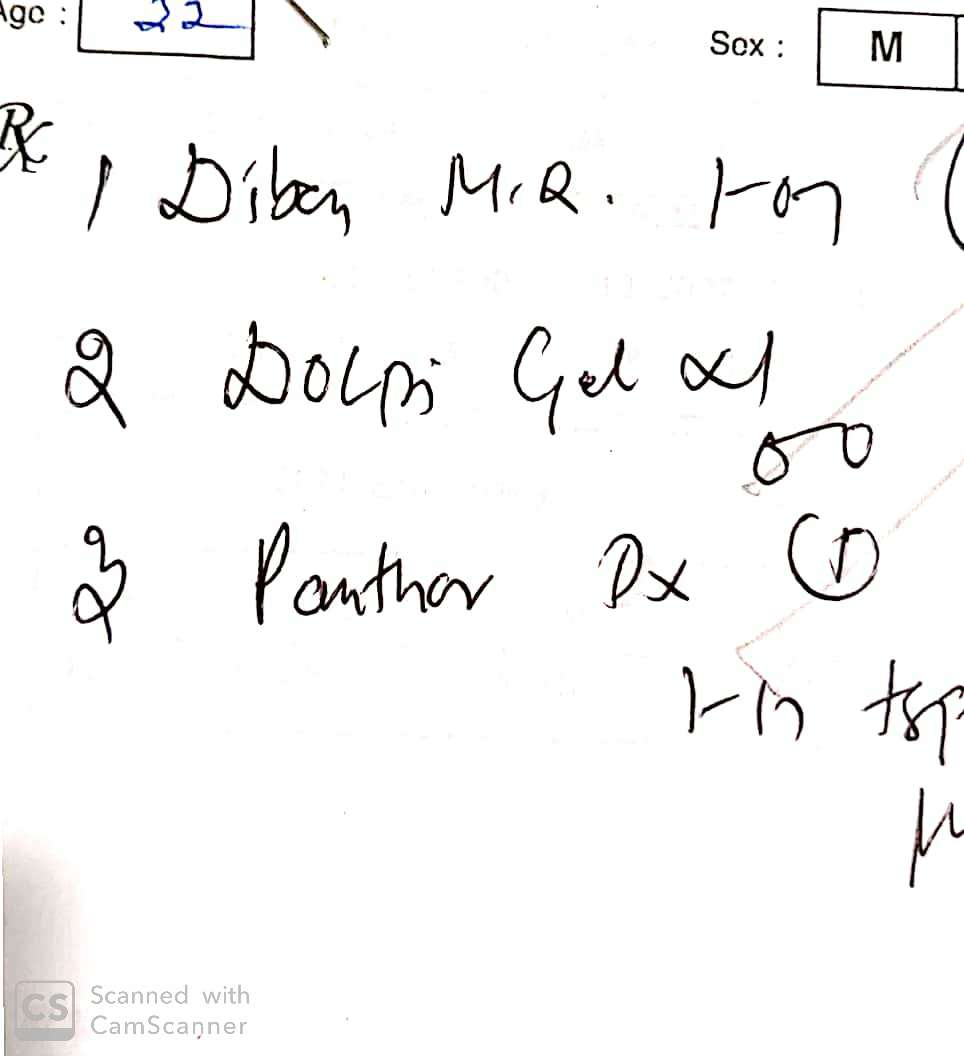 Age : 22
Sex : M
Rx
1 Diben M.R.
2 Dolpi Gel x1
3 Panthar Dx 1
tsp
CS Scanned with
CamScanner